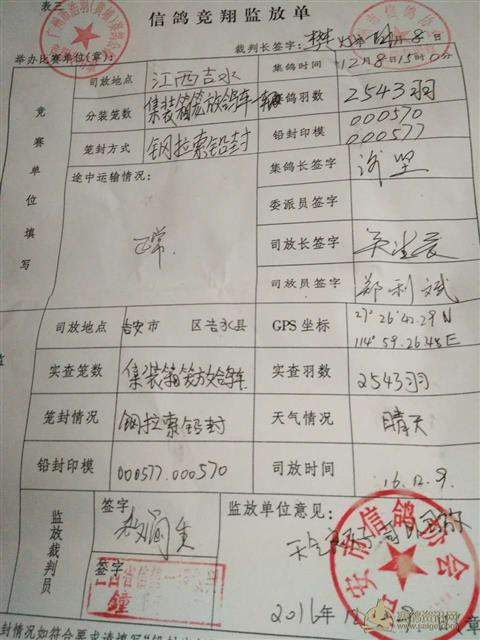 表三
信鸽竞翔监放单
举办比赛单位(章):
裁判长签字:
月8日
竞赛单位填写
司放地点 江西吉水 集鸽时间 12月8日15时0分
分装笼数 集装箱笼放鸽车 辆 赛鸽羽数 2543羽
笼封方式 钢拉索铅封 铅封印模 000570
000577
途中运输情况: 集鸽长签字
正常 委派员签字
司放长签字
司放员签字 郑利斌
司放地点 吉安市 区吉水县 GPS 坐标 27°26'42.29N
114°59.26.48E
实查笼数 集装箱笼放鸽车 实查羽数 2543羽
笼封情况 钢拉索铅封 天气情况 晴天
铅封印模 000577.000570 司放时间 16.12.9.
监放裁判员
签字
签字
监放单位意见:
安市信鸽协会
2016年12
章
封情况如符合要求请填写